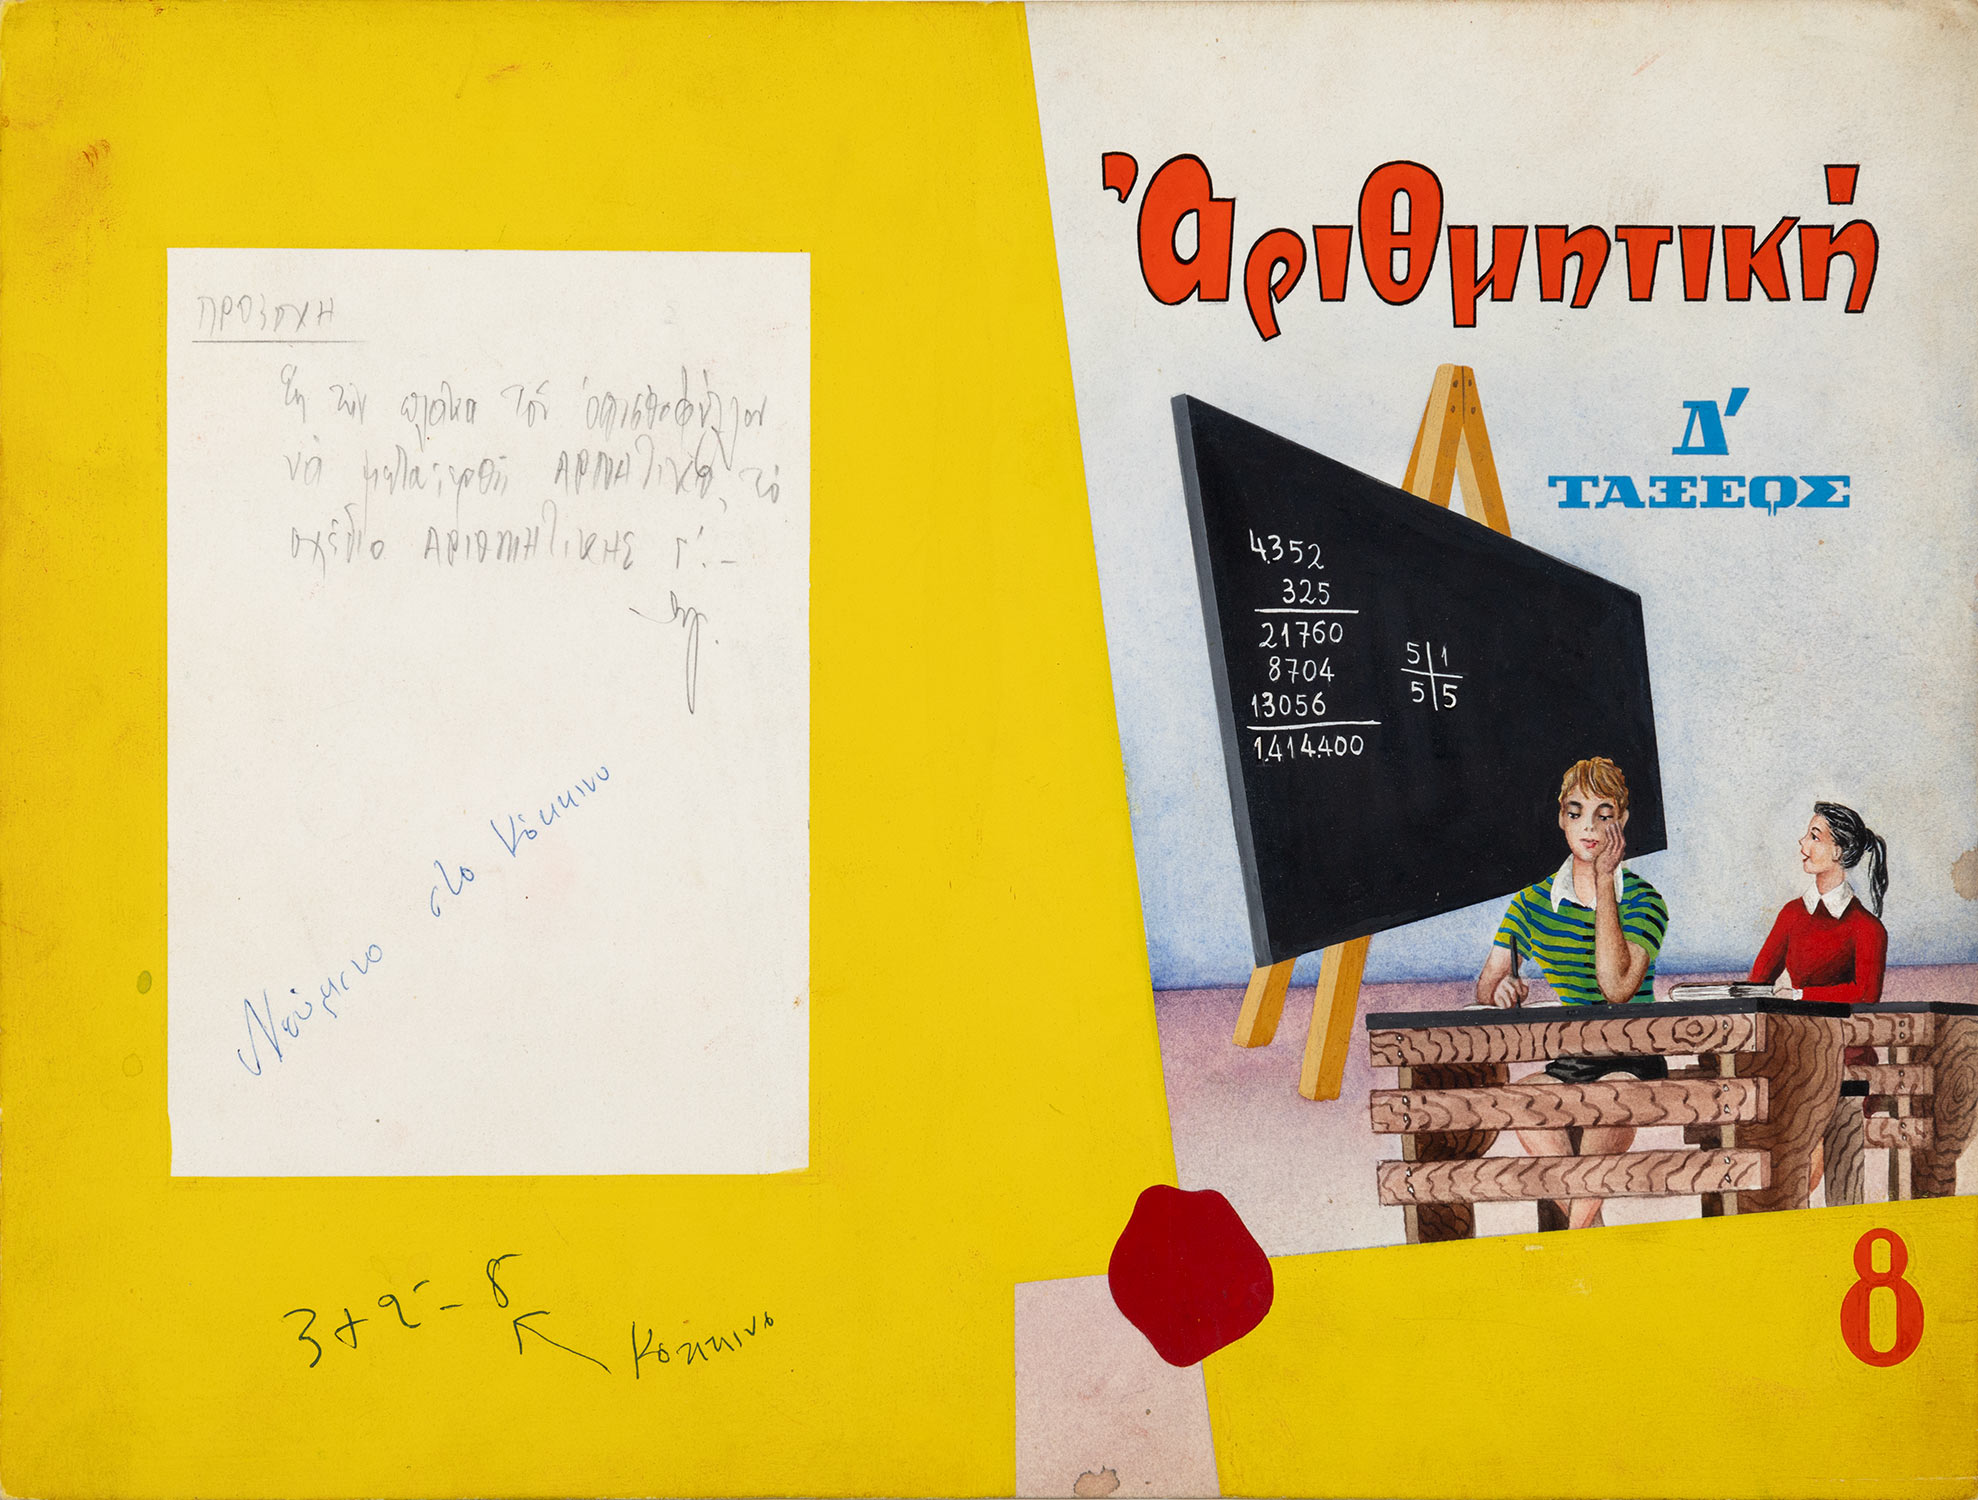 ΠΡΟΣΟΧΗ
τοῦ ὀπισθοφύλλου
νὰ τὸ
σχέδιο ΑΡΙΘΜΗΤΙΚΗΣ Γ΄.-
Νούμενο στο Κόκκινο
3+2-8
Κόκκινο
Ἀριθμητική
Δ΄
ΤΑΞΕΩΣ
4.352
325
21760
8704
13056
1.414.400
5 1
5 5
8